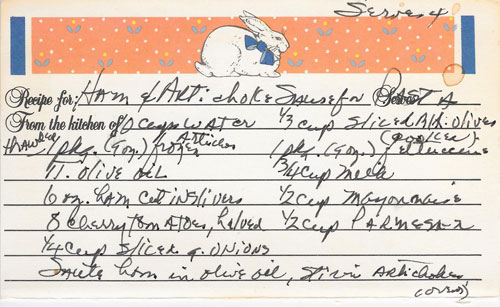 Serves 4
Recipe for: Ham & Artichoke Sause for Serves PASTA
From the kitchen of 10 cups water 1/3 cup Sliced Blk. Olives
1 pkg. (9oz.) frozen (cooked) 1 pkg. (9oz.) fettuccine
1 T. olive oil 3/4 cup milk
6 oz. ham cut in slivers 1/2 cup mayonaise
8 cherry tomatoes, halved 1/2 cup Parmesan
1/4 cup sliced g. onions
Saute ham in olive oil, stir in Artichokes
(over)